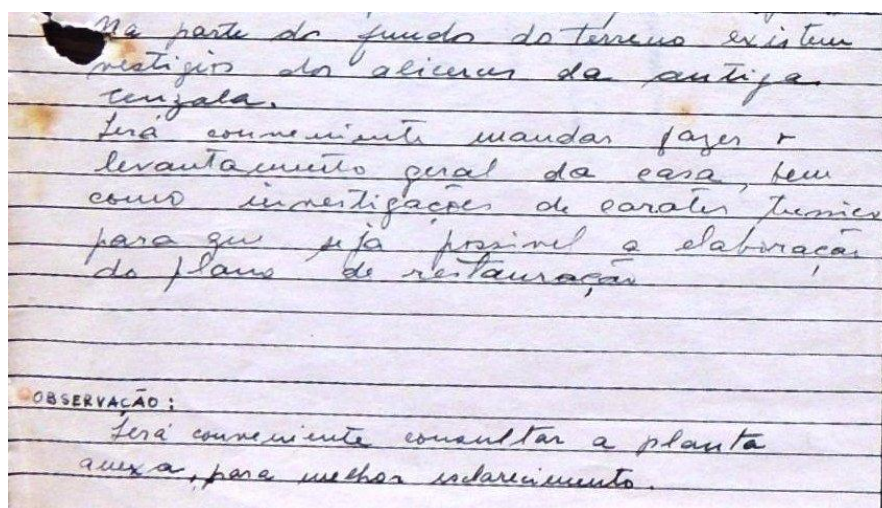 Na parte do fundo do terreno existem
vestigios dos alicerces da antiga
cenzala.
Será conveniente mandar fazer o
levantamento geral da casa, bem
como investigações de carater tecnico
para que seja possivel a elaboração
do plano de restauração
OBSERVAÇÃO:
Será conveniente consultar a planta
anexa, para melhor esclarecimento.